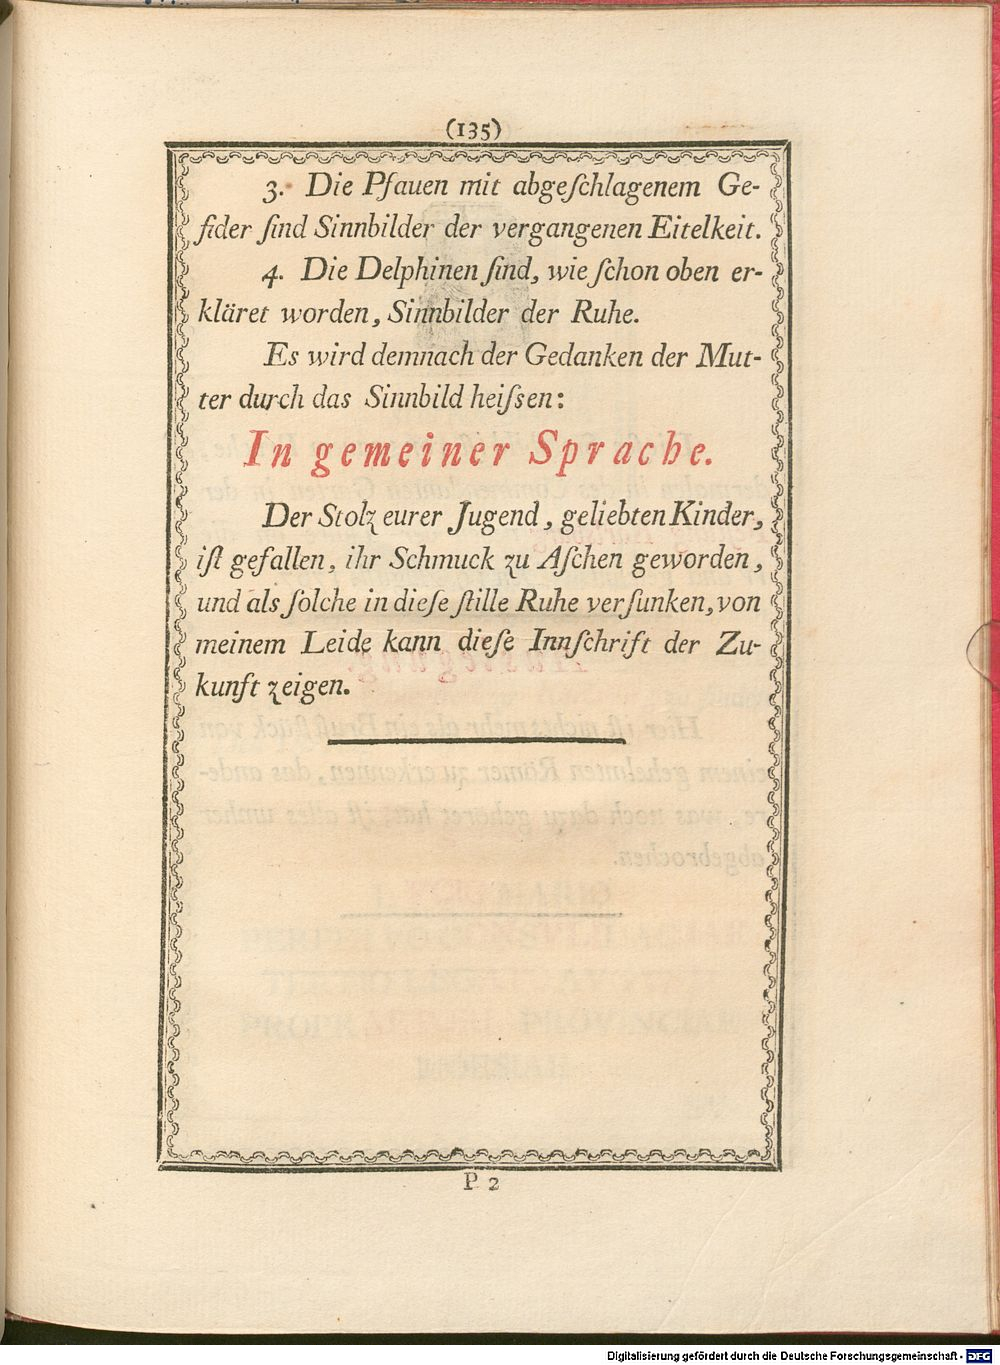 (135)
3. Die Pfauen mit abgeſchlagenem Ge-
fider ſind Sinnbilder der vergangenen Eitelkeit.
4. Die Delphinen ſind, wie ſchon oben er-
kläret worden, Sinnbilder der Ruhe.
Es wird demnach der Gedanken der Mut-
ter durch das Sinnbild heiſsen:
In gemeiner Sprache.
Der Stolz eurer Jugend, geliebten Kinder,
iſt gefallen, ihr Schmuck zu Aſchen geworden,
und als ſolche in dieſe ſtille Ruhe verſunken, von
meinem Leide kann dieſe Innſchrift der Zu-
kunft zeigen.
P 2
Digitalisierung gefördert durch die Deutsche Forschungsgemeinschaft - DFG